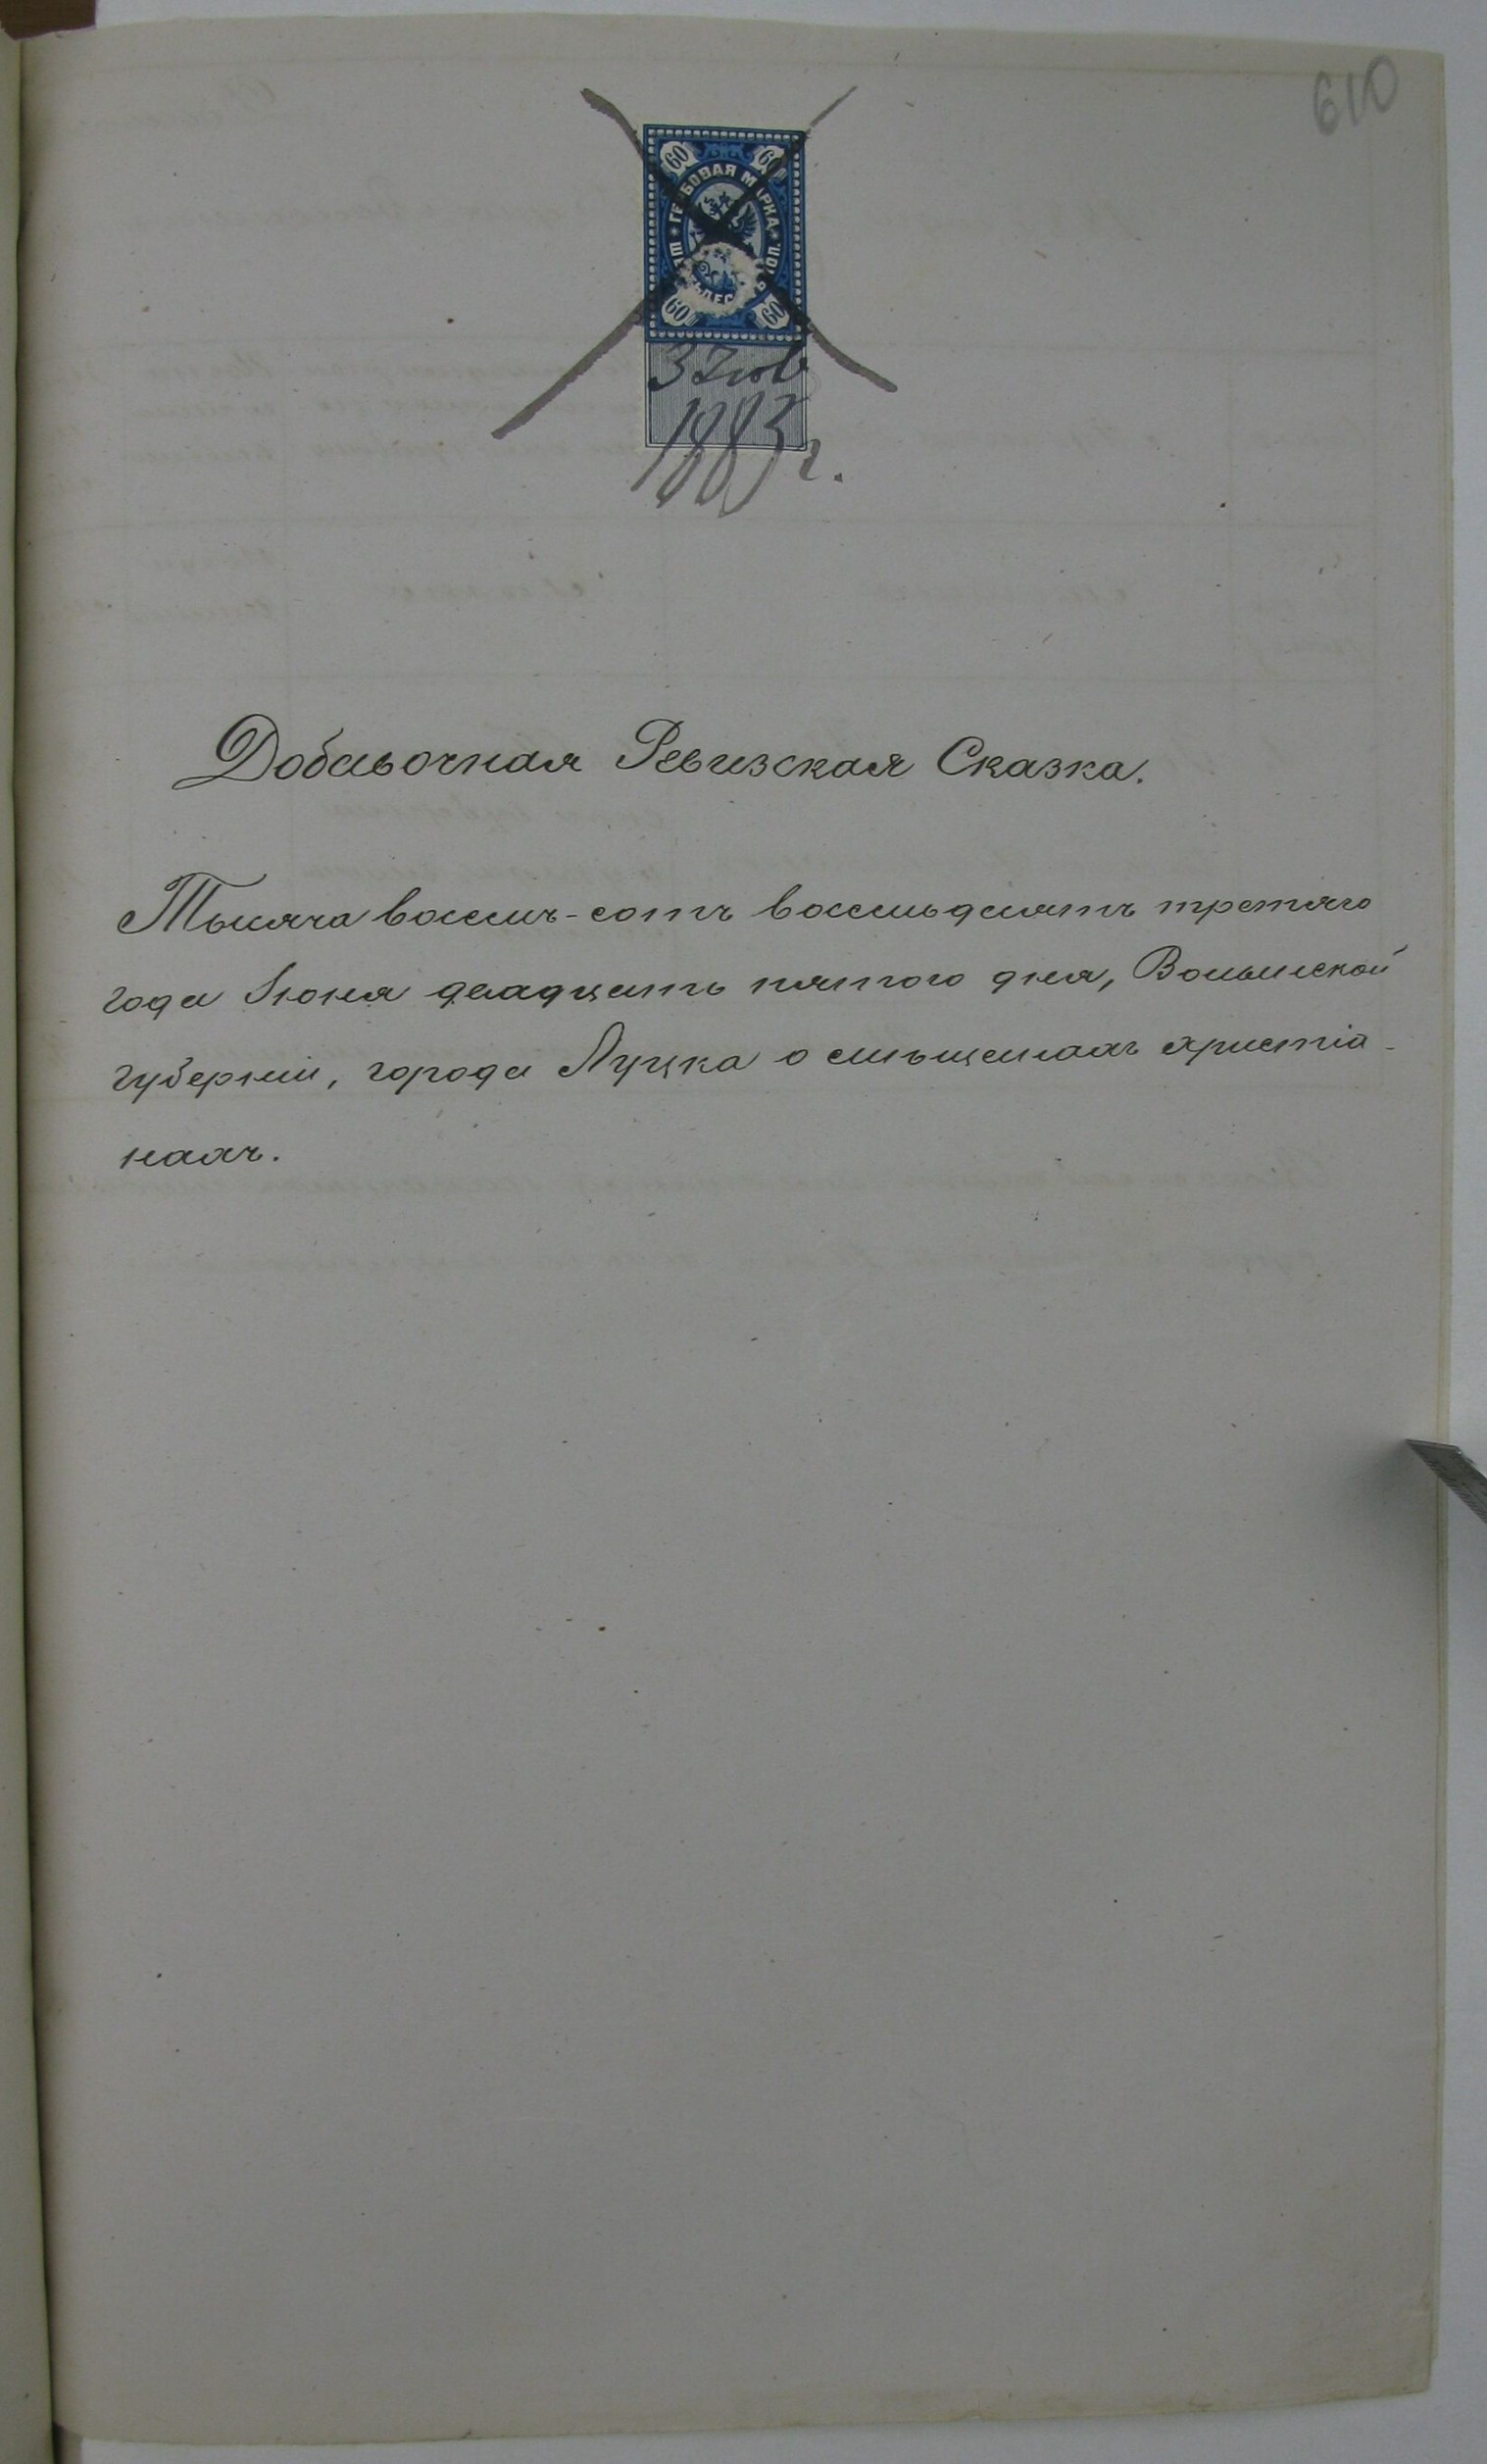 610
60 60
ГЕРБОВАЯ МАРКА
60 60
3 Іюл
1883 г.
Добавочная Ревизская Сказка.
Тысяча восемь-сотъ восемьдесятъ третяго
года Іюня двадцать пятого дня, Волынской
губерніи, города Луцка о мѣщанахъ христіа-
нахъ.